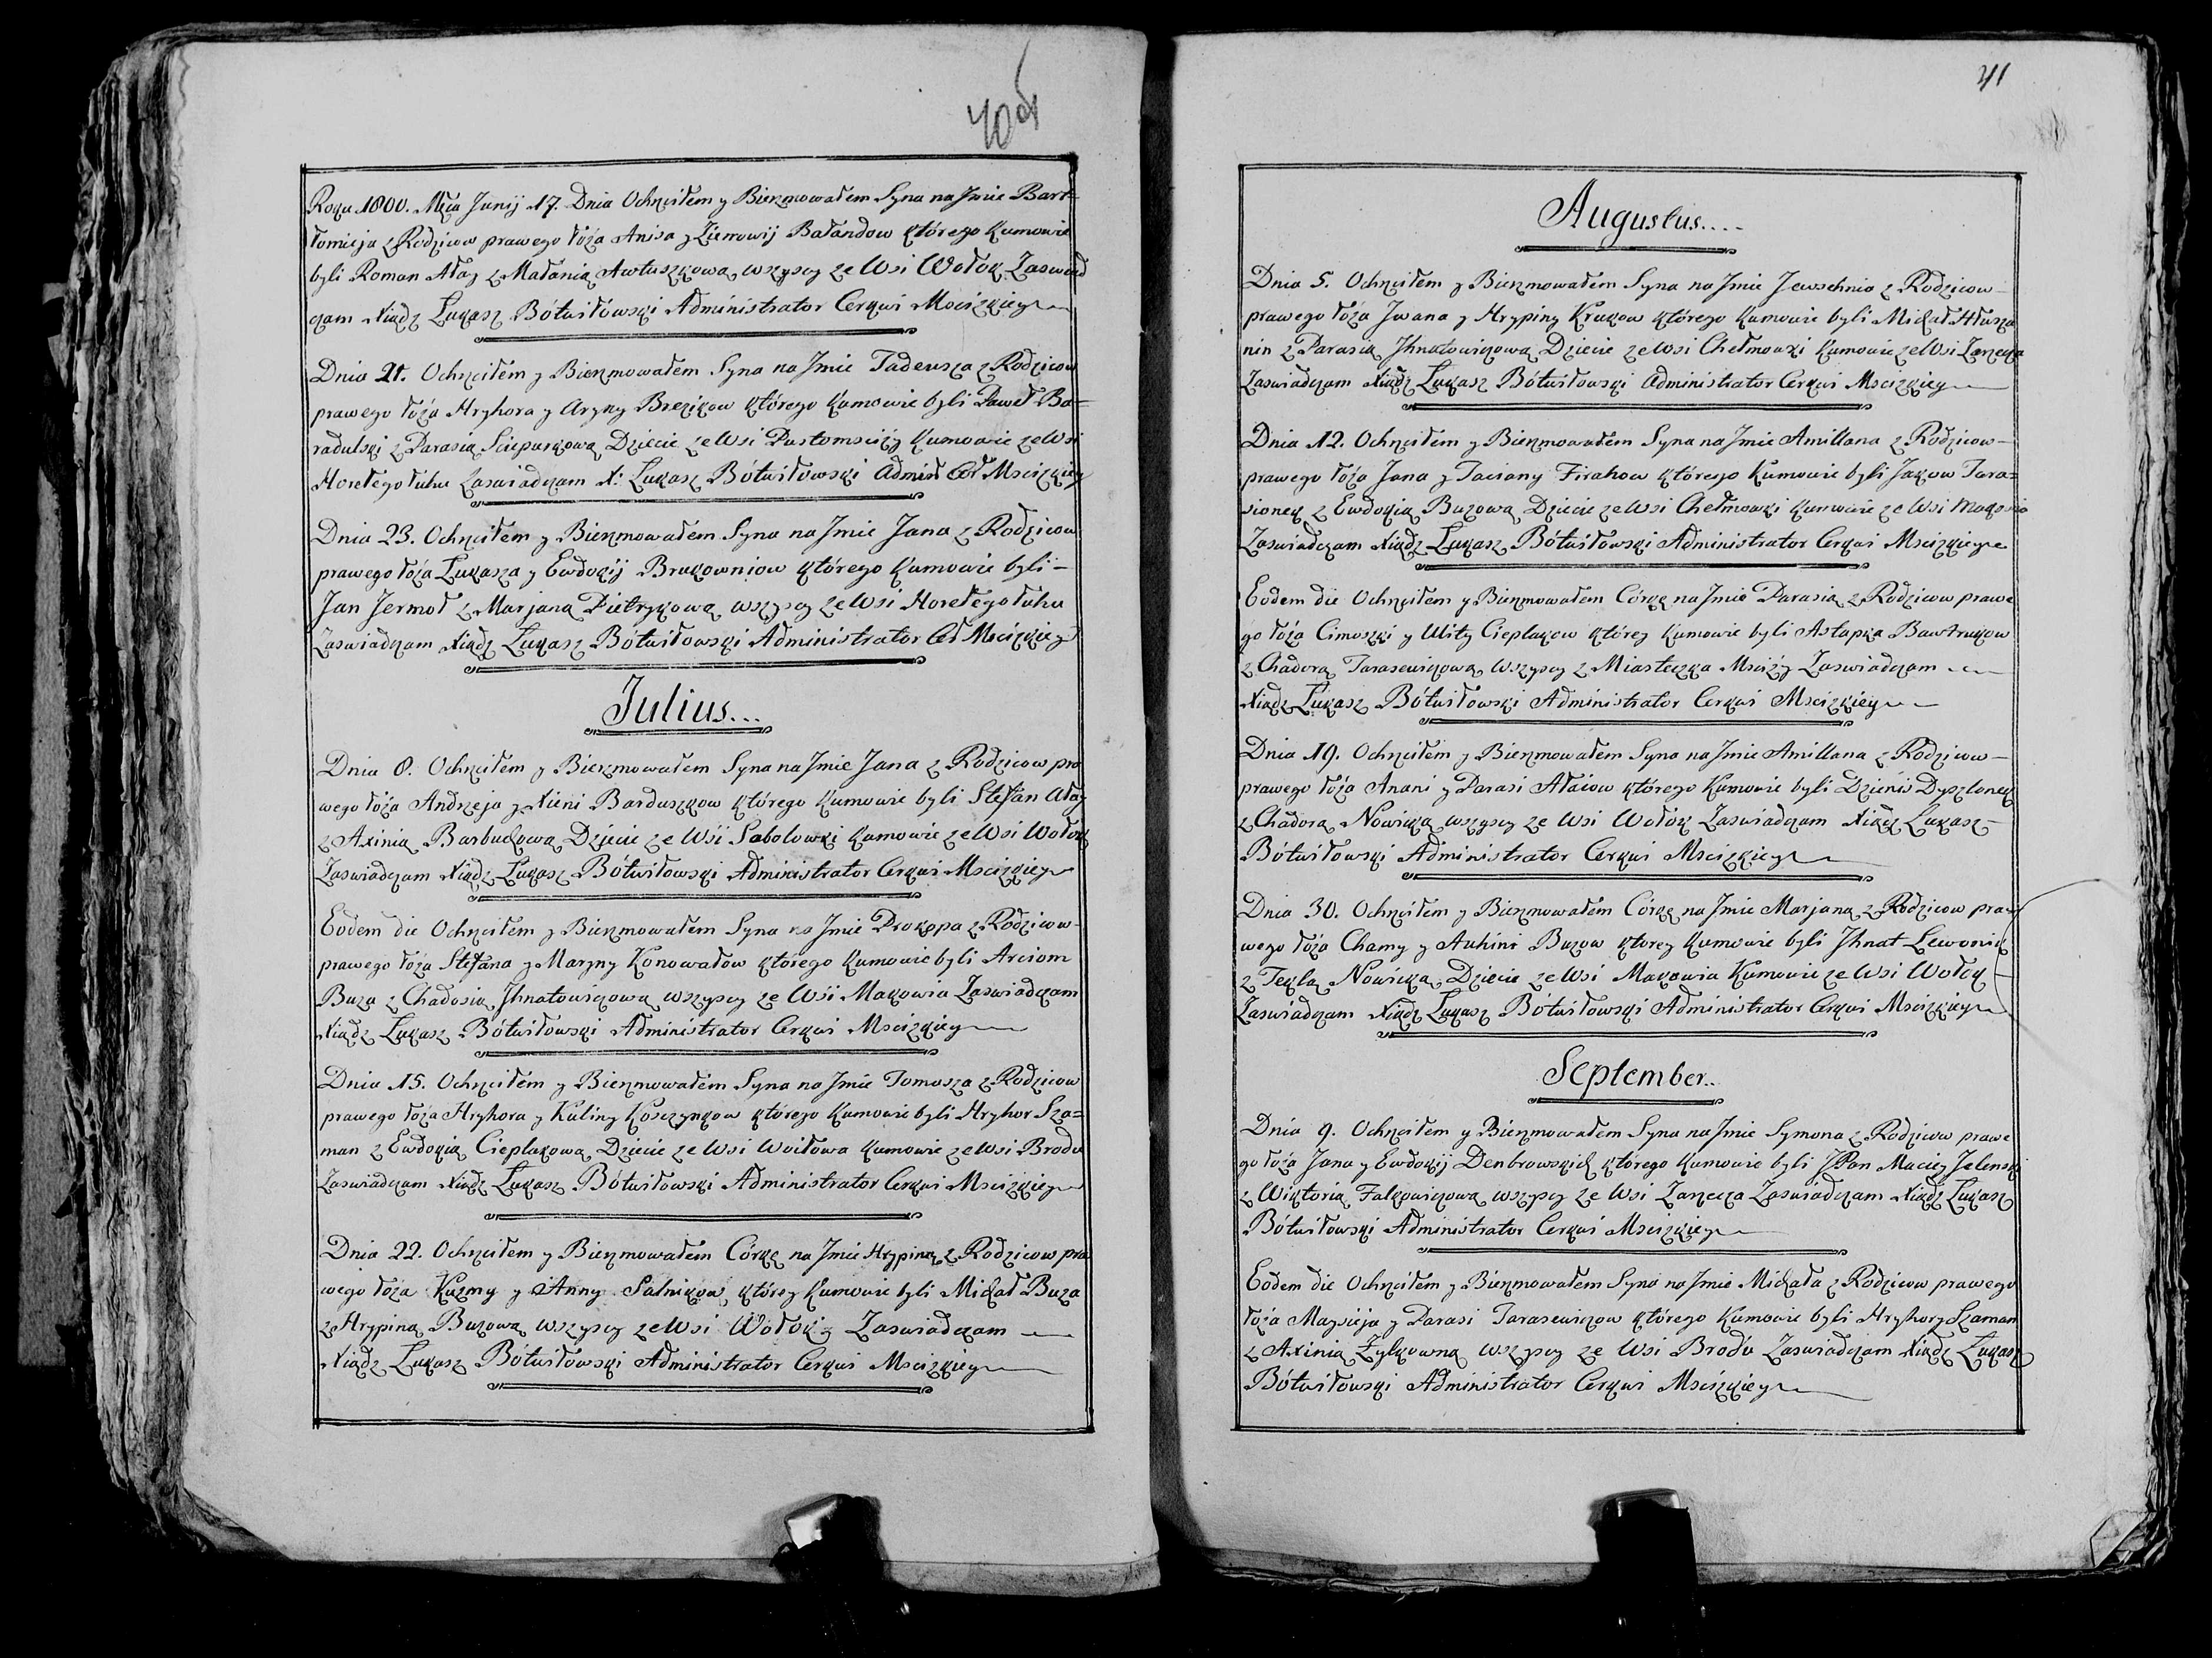 40об
Roku 1800. Mca Junij 17. Dnia Ochrzciłem y Bierzmowałem Syna na Jmie Bart-
łomieja z Rodzicow prawego łoża Anisa y Ziemowij Bałandow którego Kumowie
byli Roman Ałay z Małanią Awtuszkową wszyscy ze Wsi Wołok Zaswiad
czam Xiądz Łukasz Bótwiłowski Administrator Cerkwi Mscizkiey
Dnia 21. Ochrzciłem y Bierzmowałem Syna na Jmie Tadeusza z Rodzicow
prawego łoża Hryhora y Aryny Brezikow którego Kumowie byli Paweł Ba=
radulski z Parasią Sciepurkową Dziecie ze Wsi Pustomsciży Kumowie ze Wsi
Horełego łuhu Zaswiadczam X: Łukasz Bótwiłowski Admistr Cer Mscizkiey
Dnia 23. Ochrzciłem y Bierzmowałem Syna na Jmie Jana z Rodzicow
prawego łoża Łukasza y Ewdokij Brukowniow którego Kumowie byli -
Jan Jermoł z Marjaną Pietrykową wszyscy ze Wsi Horełego łuhu
Zaswiadczam Xiądz Łukasz Bótwiłowski Administrator Cer Mscizkiey
Julius...
Dnia 8. Ochrzciłem y Bierzmowałem Syna na Jmie Jana z Rodzicow pra
wego łoża Andrzeja y Xieni Barduszkow którego Kumowie byli Stefan Ałay
z Axinią Barbuchową Dziecie ze Wsii Sabolowki Kumowie ze Wsi Wołok
Zaswiadczam Xiądz Łukasz Bótwiłowski Administrator Cerkwi Mscizkiey
Eodem die Ochrzciłem y Bierzmowałem Syna na Jmie Prokopa z Rodzicow-
prawego łoża Stefana y Maryny Konowałow którego Kumowie byli Arciom
Buza z Chadosią Jhnatowiczową wszyscy ze Wsii Makowia Zaswiadczam
Xiądz Łukasz Bótwiłowski Administrator Cerkwi Mscizkiey
Dnia 15. Ochrzciłem y Bierzmowałem Syna na Jmie Tomosza z Rodzicow
prawego łoża Hryhora y Kuliny Koszczynkow którego Kumowie byli Hryhor Sza=
man z Ewdokią Cieplakową Dziecie ze Wsi Woiłowa Kumowie ze Wsi Brodu
Zaswiadczam Xiądz Łukasz Bótwiłowski Administrator Cerkwi Mscizkiey
Dnia 22. Ochrzciłem y Bierzmowałem Córkę na Jmie Hrypiną z Rodzicow pra
wego łoża Kuzmy y Anny Salnikow, którey Kumowie byli Michał Buza
z Hrypiną Buzową wszyscy ze Wsi Wołoki Zaswiadczam
Xiądz Łukasz Bótwiłowski Administrator Cerkwi Mscizkiey
41
Augustus....
Dnia 5. Ochrzciłem y Bierzmowałem Syna na Jmie Jewschnia z Rodzicow-
prawego łoża Jwana y Hrypiny Krukow którego Kumowie byli Michał Hłusza
nin z Parasią Jhnatowiczową Dziecie ze Wsi Chełmowki Kumowie ze Wsi Zarzecza
Zaswiadczam Xiądz Łukasz Bótwiłowski Administrator Cerkwi Mscizkiey
Dnia 12. Ochrzciłem y Bierzmowałem Syna na Jmie Amillana z Rodzicow-
prawego łoża Jana y Taciany Firahow którego Kumowie byli Jakow Tara=
sionek z Ewdokią Buzową Dziecie ze Wsi Chełmowki Kumowie ze Wsi Makowia
Zaswiadczam Xiądz Łukasz Bótwiłowski Administrator Cerkwi Mscizkiey
Eodem die Ochrzciłem y Bierzmowałem Córkę na Jmie Parasią z Rodzicow prawe
go łoża Cimoszki y Ulity Cieplakow którey Kumowie byli Astapka Bawtrukow
z Chadorą Tarasewiczową Wszyscy z Miasteczka Msciży Zaswiadczam
Xiądz Łukasz Bótwiłowski Administrator Cerkwi Mscizkiey
Dnia 19. Ochrzciłem y Bierzmowałem Syna na Jmie Amillana z Rodzicow-
prawego łoża Anani y Parasi Ałaiow którego Kumowie byli Dzienis Dyszlonek
z Chadorą Nowicką wszyscy ze Wsi Wołok Zaswiadczam Xiądz Łukasz-
Bótwiłowski Administrator Cerkwi Mscizkiey
Dnia 30. Ochrzciłem y Bierzmowałem Córkę na Jmie Marjaną z Rodzicow pra
wego łoża Chamy y Auhini Buzow którey Kumowie byli Jhnat Lewonik
z Teklą Nowicką Dziecie ze Wsi Makowia Kumowie ze Wsi Wołok
Zaswiadczam Xiądz Łukasz Bótwiłowski Administrator Cerkwi Mscizkiey
September..
Dnia 9. Ochrzciłem y Bierzmowałem Syna na Jmie Symona z Rodzicow prawe
go łoża Jana y Ewdokij Denbrowskich którego Kumowie byli JPan Maciey Jelenski
z Wiktorią Falkowiczową wszyscy ze Wsi Zarzecza Zaswiadczam Xiądz Łukasz
Bótwiłowski Administrator Cerkwi Mscizkiey
Eodem die Ochrzciłem y Bierzmowałem Syna na Jmie Michała z Rodzicow prawego
łoża Maysieja y Parasi Tarasewiczow którego Kumowie byli Hryhory Szaman
z Axinią Zylkowną wszyscy ze Wsi Brodu Zaswiadczam Xiądz Łukasz
Bótwiłowski Administrator Cerkwi Mscizkiey